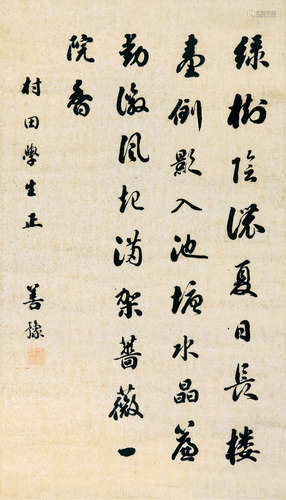 綠樹陰濃夏日長樓
臺倒影入池塘水晶簾
動微風起滿架薔薇一
院香
村田學生正
善豫